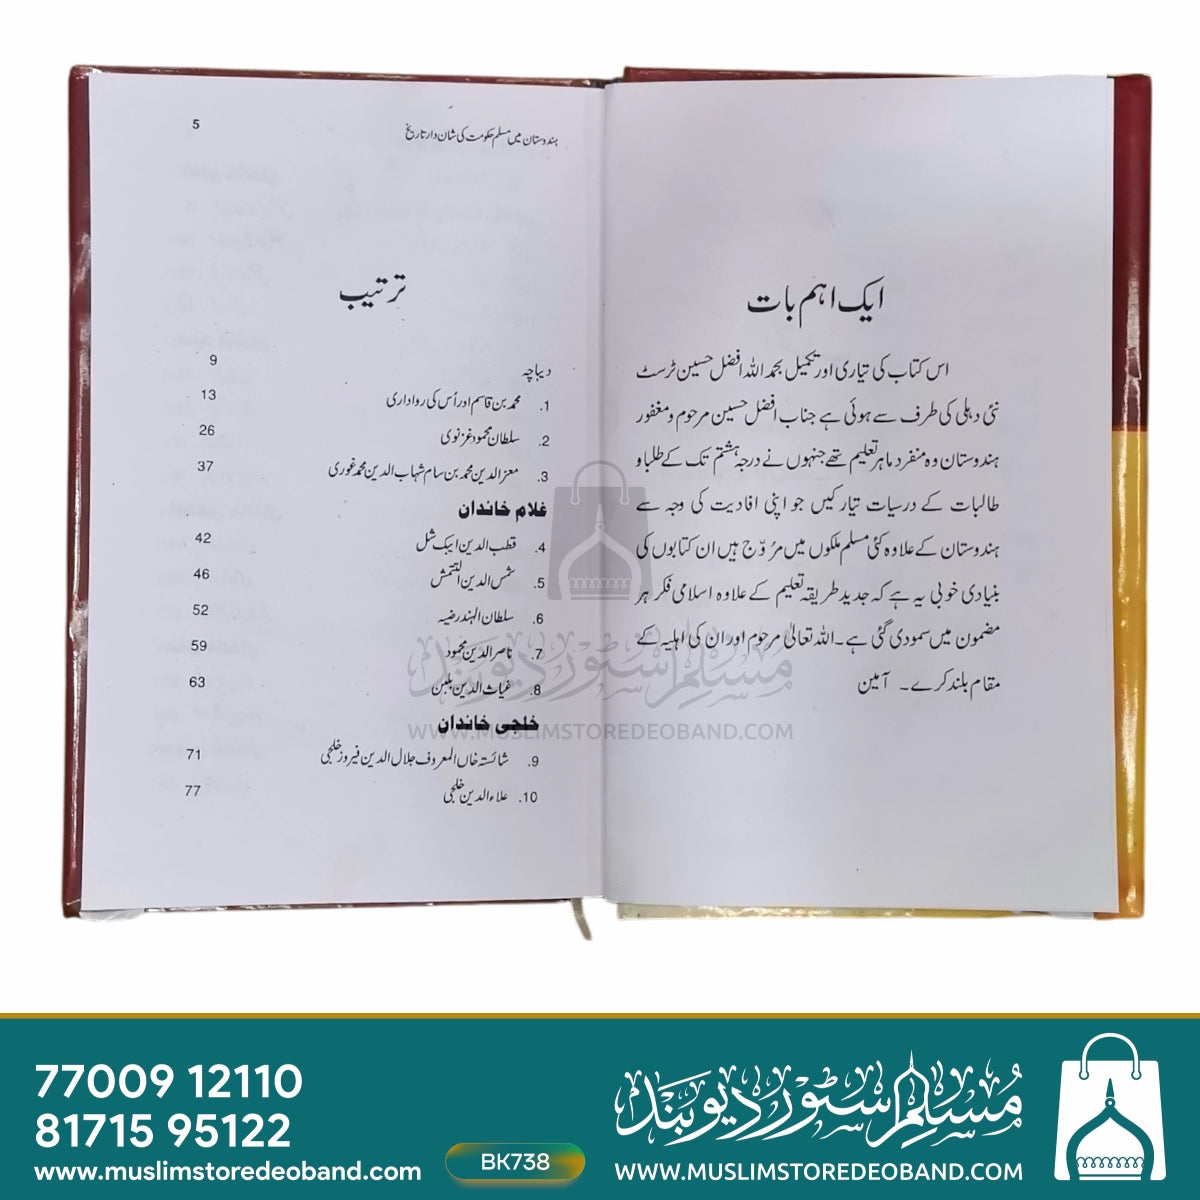 ایک اہم بات
اس کتاب کی تیاری اور تکمیل بحمد اللہ افضل حسین ٹرسٹ
نئی دہلی کی طرف سے ہوئی ہے جناب افضل حسین مرحوم و مغفور
ہندوستان وہ منفرد ماہر تعلیم تھے جنہوں نے درجہ ہشتم تک کے طلبا و
طالبات کے درسیات تیار کیں جو اپنی افادیت کی وجہ سے
ہندوستان کے علاوہ کئی مسلم ملکوں میں مروّج ہیں ان کتابوں کی
بنیادی خوبی یہ ہے کہ جدید طریقہ تعلیم کے علاوہ اسلامی فکر ہر
مضمون میں سمودی گئی ہے۔ اللہ تعالیٰ مرحوم اور ان کی اہلیہ کے
مقام بلند کرے۔ آمین
ہندوستان میں مسلم حکومت کی شان دار تاریخ 5
ترتیب
دیباچہ 9
1. محمد بن قاسم اور اُس کی رواداری 13
2. سلطان محمود غزنوی 26
3. معز الدین محمد بن سام شہاب الدین محمد غوری 37
غلام خاندان
4. قطب الدین ایبک شل 42
5. شمس الدین التمش 46
6. سلطان الہند رضیہ 52
7. ناصر الدین محمود 59
8. غیاث الدین بلبن 63
خلجی خاندان
9. شائستہ خاں المعروف جلال الدین فیروز خلجی 71
10. علاء الدین خلجی 77
مسلم سٹور دیوبند
WWW.MUSLIMSTOREDEOBAND.COM
77009 12110
81715 95122
www.muslimstoredeoband.com
BK738
مسلم سٹور دیوبند
WWW.MUSLIMSTOREDEOBAND.COM